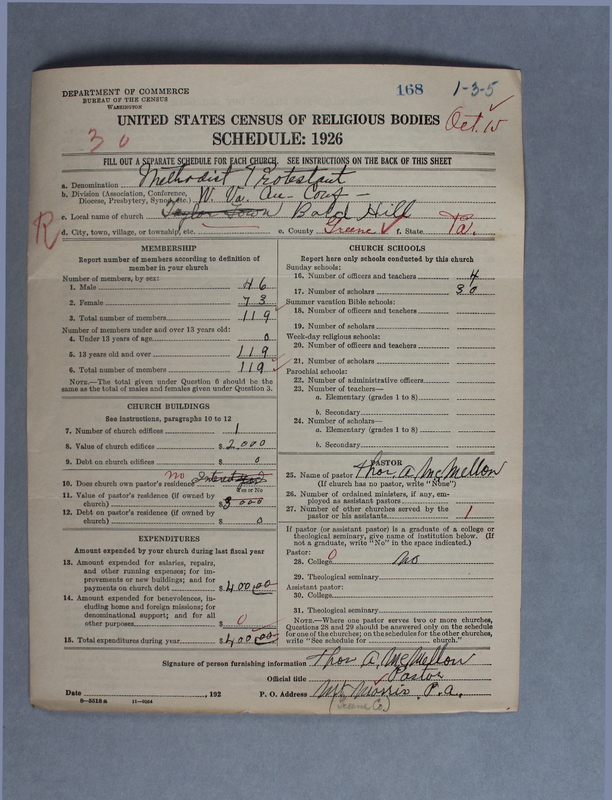 DEPARTMENT OF COMMERCE
BUREAU OF THE CENSUS
WASHINGTON
168 1-3-5
UNITED STATES CENSUS OF RELIGIOUS BODIES
Oct. 15
30
SCHEDULE: 1926
FILL OUT A SEPARATE SCHEDULE FOR EACH CHURCH. SEE INSTRUCTIONS ON THE BACK OF THIS SHEET
a. Denomination Methodist Protestant
b. Division (Association, Conference, Diocese, Presbytery, Synod, etc.) W. Va. An- Conf -
c. Local name of church (Taylor Town) Bald Hill
R
d. City, town, village, or township, etc. e. County Greene f. State Pa.
MEMBERSHIP
Report number of members according to definition of
member in your church
Number of members, by sex:
1. Male 46
2. Female 73
3. Total number of members 119
Number of members under and over 13 years old:
4. Under 13 years of age 0
5. 13 years old and over 119
6. Total number of members 119
NOTE.—The total given under Question 6 should be the
same as the total of males and females given under Question 3.
CHURCH BUILDINGS
See instructions, paragraphs 10 to 12
7. Number of church edifices 1
8. Value of church edifices $ 2,000
9. Debt on church edifices $ 0
10. Does church own pastor's residence? no
Yes or No
11. Value of pastor's residence (if owned by
church) $ 3000
12. Debt on pastor's residence (if owned by
church) $ 0
EXPENDITURES
Amount expended by your church during last fiscal year
13. Amount expended for salaries, repairs,
and other running expenses; for im-
provements or new buildings; and for
payments on church debt $ 400.00
14. Amount expended for benevolences, in-
cluding home and foreign missions; for
denominational support; and for all
other purposes $ 0
15. Total expenditures during year $ 400.00
CHURCH SCHOOLS
Report here only schools conducted by this church
Sunday schools:
16. Number of officers and teachers 4
17. Number of scholars 30
Summer vacation Bible schools:
18. Number of officers and teachers
19. Number of scholars
Week-day religious schools:
20. Number of officers and teachers
21. Number of scholars
Parochial schools:
22. Number of administrative officers
23. Number of teachers—
a. Elementary (grades 1 to 8)
b. Secondary
24. Number of scholars—
a. Elementary (grades 1 to 8)
b. Secondary
PASTOR
25. Name of pastor Thos. A. McMellon
(If church has no pastor, write "None")
26. Number of ordained ministers, if any, em-
ployed as assistant pastors
27. Number of other churches served by the
pastor or his assistants 1
If pastor (or assistant pastor) is a graduate of a college or
theological seminary, give name of institution below. (If
not a graduate, write "No" in the space indicated.)
Pastor:
28. College 0 No
29. Theological seminary
Assistant pastor:
30. College
31. Theological seminary
NOTE.—Where one pastor serves two or more churches,
Questions 28 and 29 should be answered only on the schedule
for one of the churches; on the schedules for the other churches,
write "See schedule for church."
Signature of person furnishing information Thos A. McMellon
Official title Pastor
Date , 192 P. O. Address Mt. Morris, P.a.
8—5518a 11—9054 (Greene Co.)